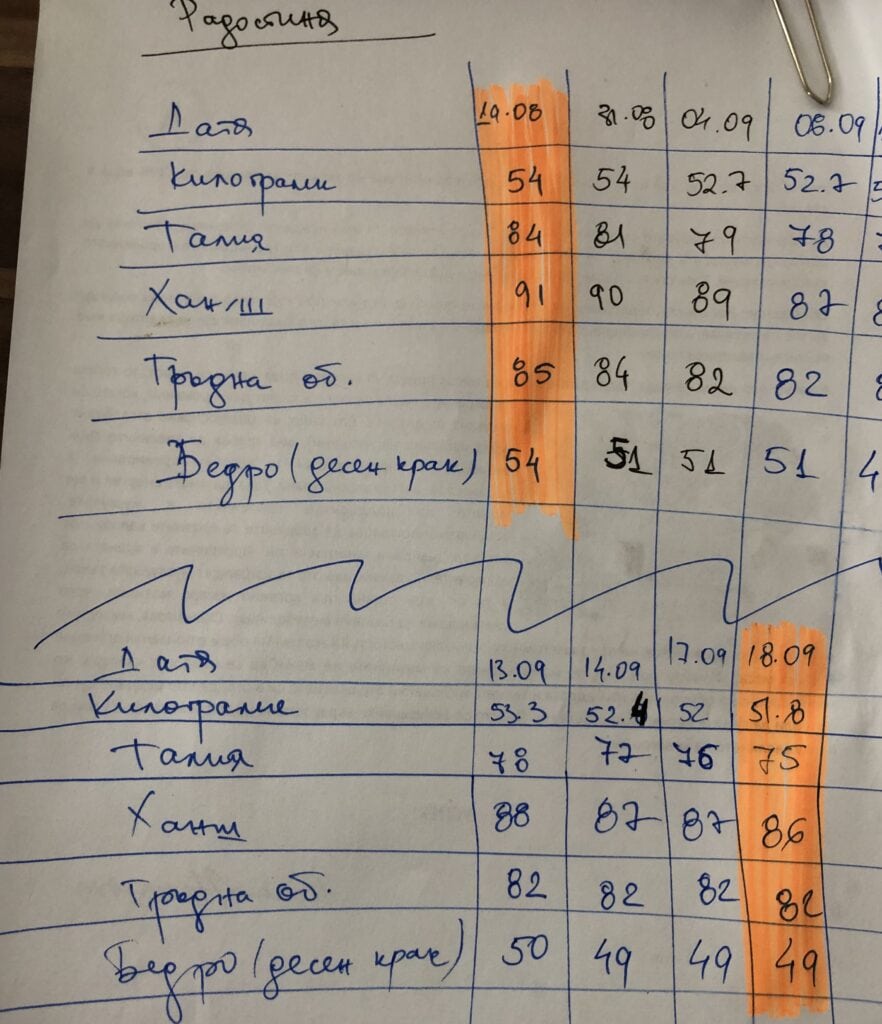 Радостина
Дата 19.08 31.08 04.09 06.09
Килограми 54 54 52.7 52.7
Талия 84 81 79 78
Ханш 91 90 89 87
Гръдна об. 85 84 82 82
Бедро (десен крак) 54 51 51 51
Дата 13.09 14.09 17.09 18.09
Килограми 53.3 52.4 52 51.8
Талия 78 77 76 75
Ханш 88 87 87 86
Гръдна об. 82 82 82 82
Бедро (десен крак) 50 49 49 49